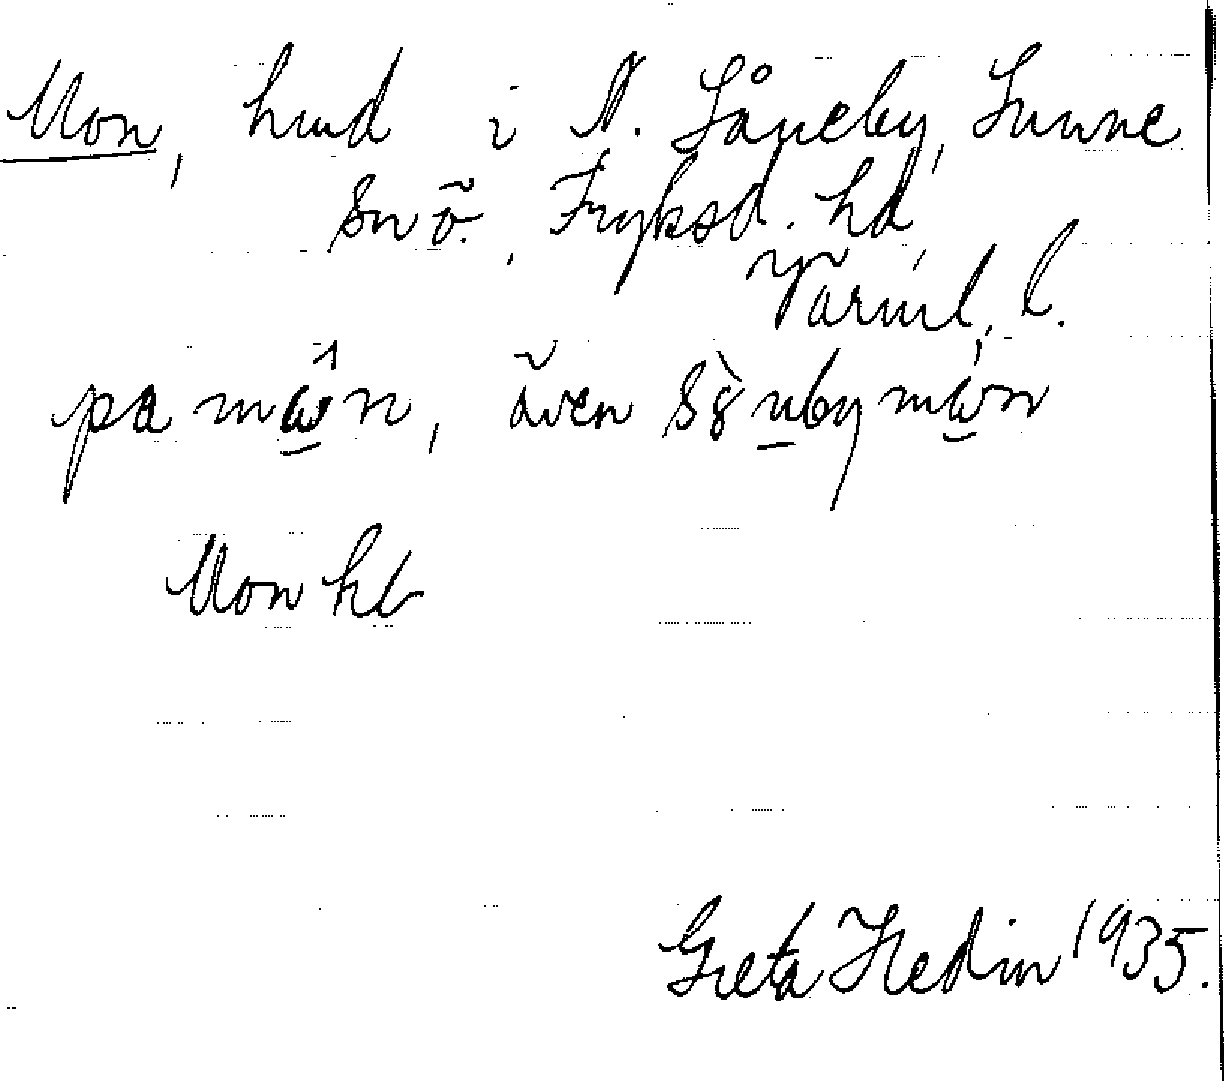 Mon, hmd i N. Såneby, Sunne
sn ö., Fryksd. hd,
Värml, l.
pa mωn, även s8nby mωn
Mon kb
Greta Hedin 1935.